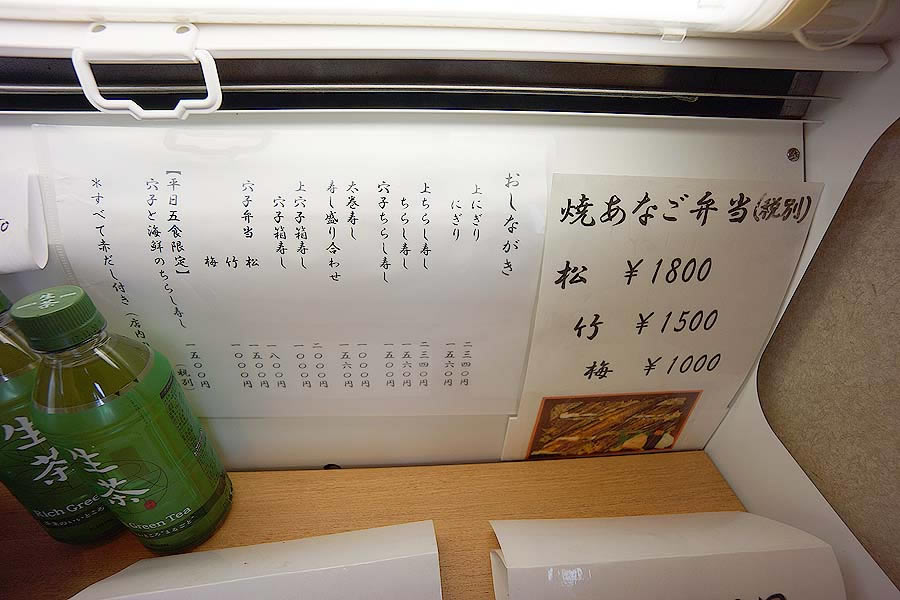 おしながき
上にぎり 二三四〇円
にぎり 一五六〇円
上ちらし寿し 二三四〇円
ちらし寿し 一五六〇円
穴子ちらし寿し 一五〇〇円
太巻寿し 一〇〇〇円
寿し盛り合わせ 一五六〇円
上穴子箱寿し 二〇〇〇円
穴子箱寿し
穴子弁当 松 一八〇〇円
竹 一五〇〇円
梅 一〇〇〇円
【平日五食限定】
穴子と海鮮のちらし寿し 一五〇〇円
(税別
*すべて赤だし付き(店内
焼あなご弁当(税別)
松 ¥1800
竹 ¥1500
梅 ¥1000
生茶
Rich Green
生茶
Green Tea